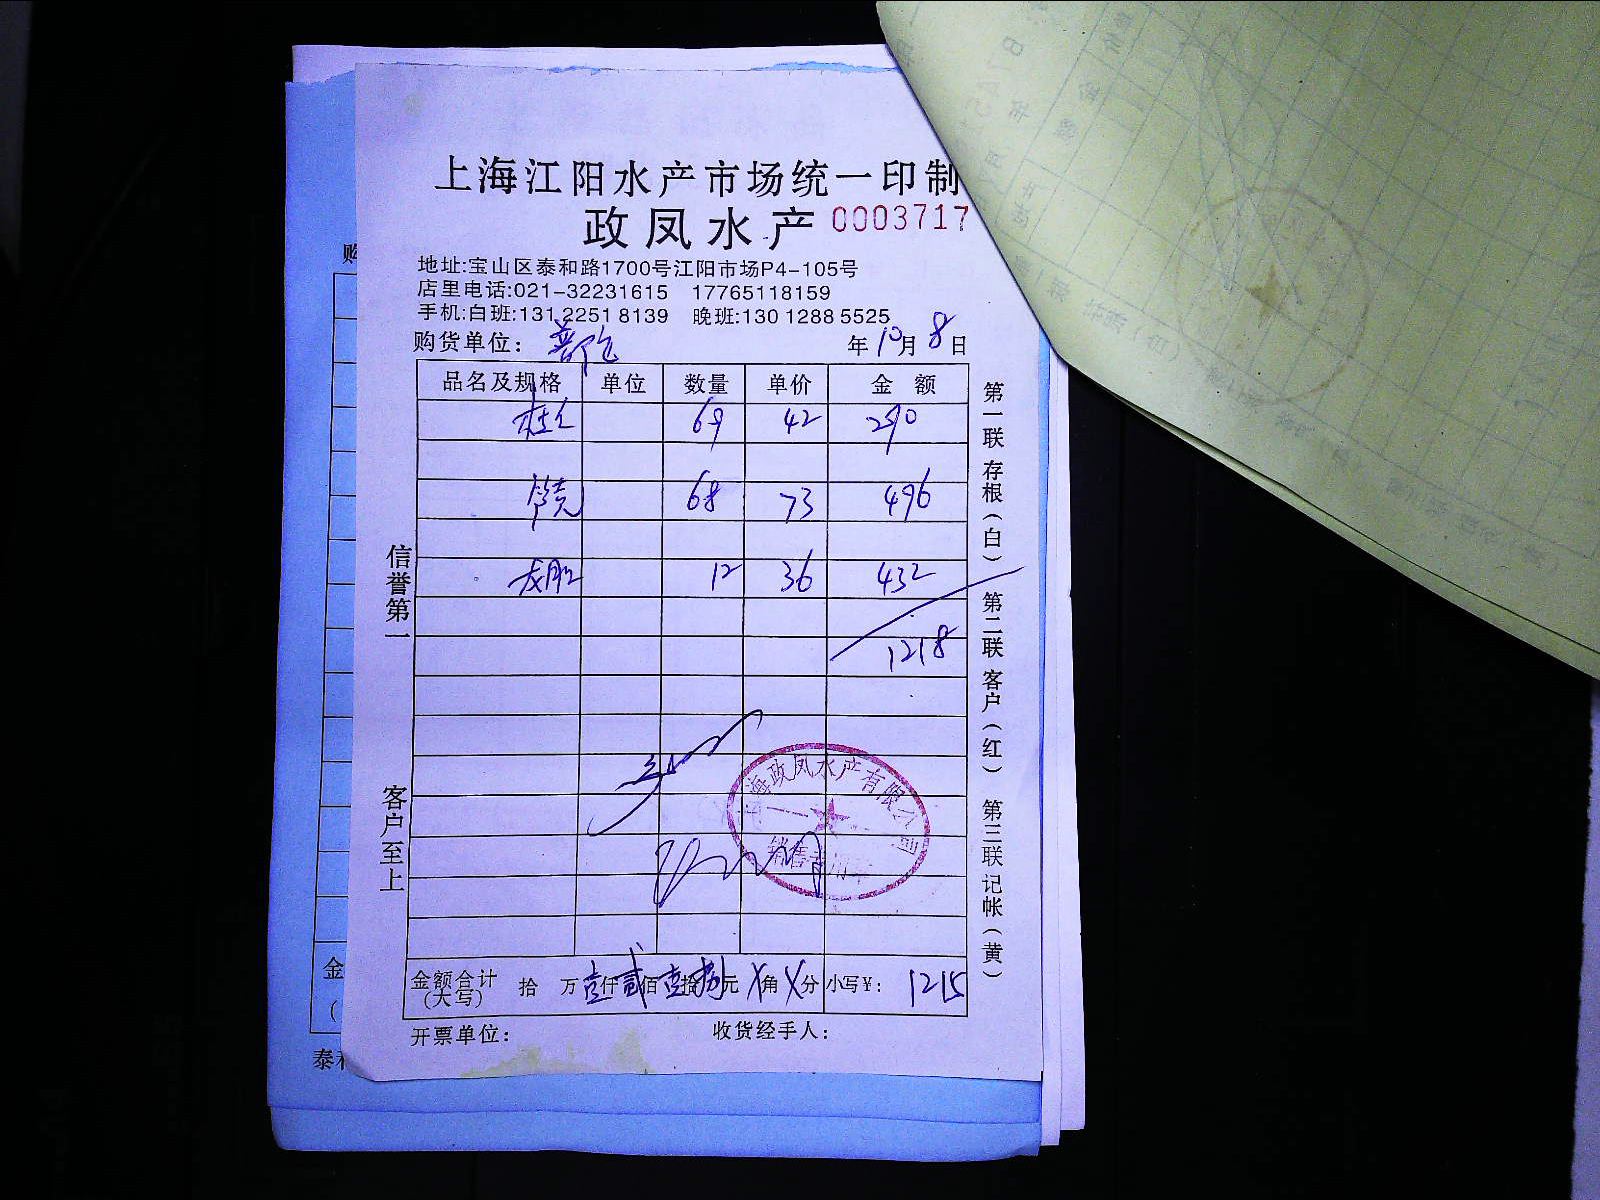 上海江阳水产市场统一印制
政凤水产 0003717
地址:宝山区泰和路1700号江阳市场P4-105号
店里电话:021-32231615 17765118159
手机:白班:131 2251 8139 晚班:130 1288 5525
购货单位: 年10月8日
品名及规格 单位 数量 单价 金 额
69 42 290
68 73 496
12 36 432
1218
金额合计(大写) 拾 万壹仟贰佰壹拾捌元X角X分 小写¥: 1215
开票单位: 收货经手人:
信誉第一 客户至上
第一联存根(白) 第二联客户(红) 第三联记帐(黄)
上海政凤水产有限公司
销售专用章
购
金
(
泰和